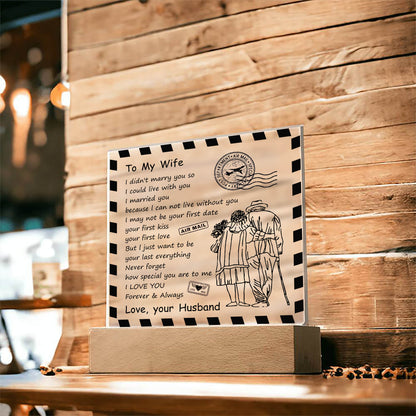 To My Wife
I didn't marry you so
I could live with you
I married you
because I can not live without you
I may not be your first date
your first kiss
your first love
But I just want to be
your last everything
Never forget
how special you are to me
I LOVE YOU
Forever & Always
Love, your Husband
AIR MAIL
AIR MAIL